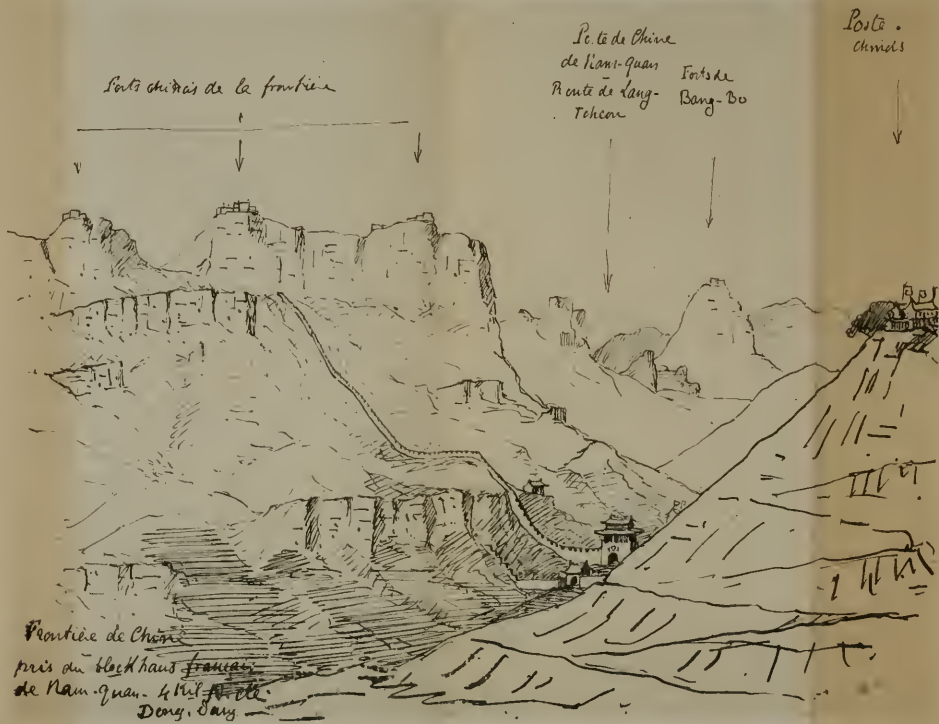 Forts chinois de la frontière
Porte de Chine
de Nam-quan
Route de Lang-
Tcheou
Forts de
Bang-Bo
Poste.
chinois
Frontière de Chine
pris du blockhaus français
de Nam-quan. 4 Kil
Dong. Dang